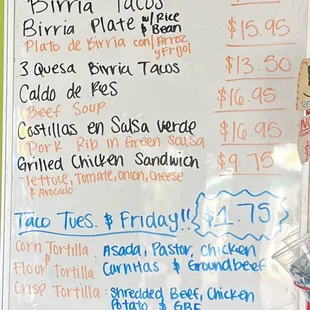 Birria Tacos
Birria Plate w/Rice & Bean $15.95
Plato de Birria con/Arroz y Frijol
3 Quesa Birria Tacos $13.50
Caldo de Res $16.95
Beef Soup
Costillas en Salsa verde $16.95
Pork Rib in Green Salsa
Grilled Chicken Sandwich $9.75
-lettuce, Tomate, onion, cheese
& Avocado
Taco Tues. & Friday!! $1.75
Corn Tortilla : Asada, Pastor, Chicken
&
Flour Tortilla Carnitas & Groundbeef
Crisp Tortilla: Shredded Beef, Chicken
Potato & GBF